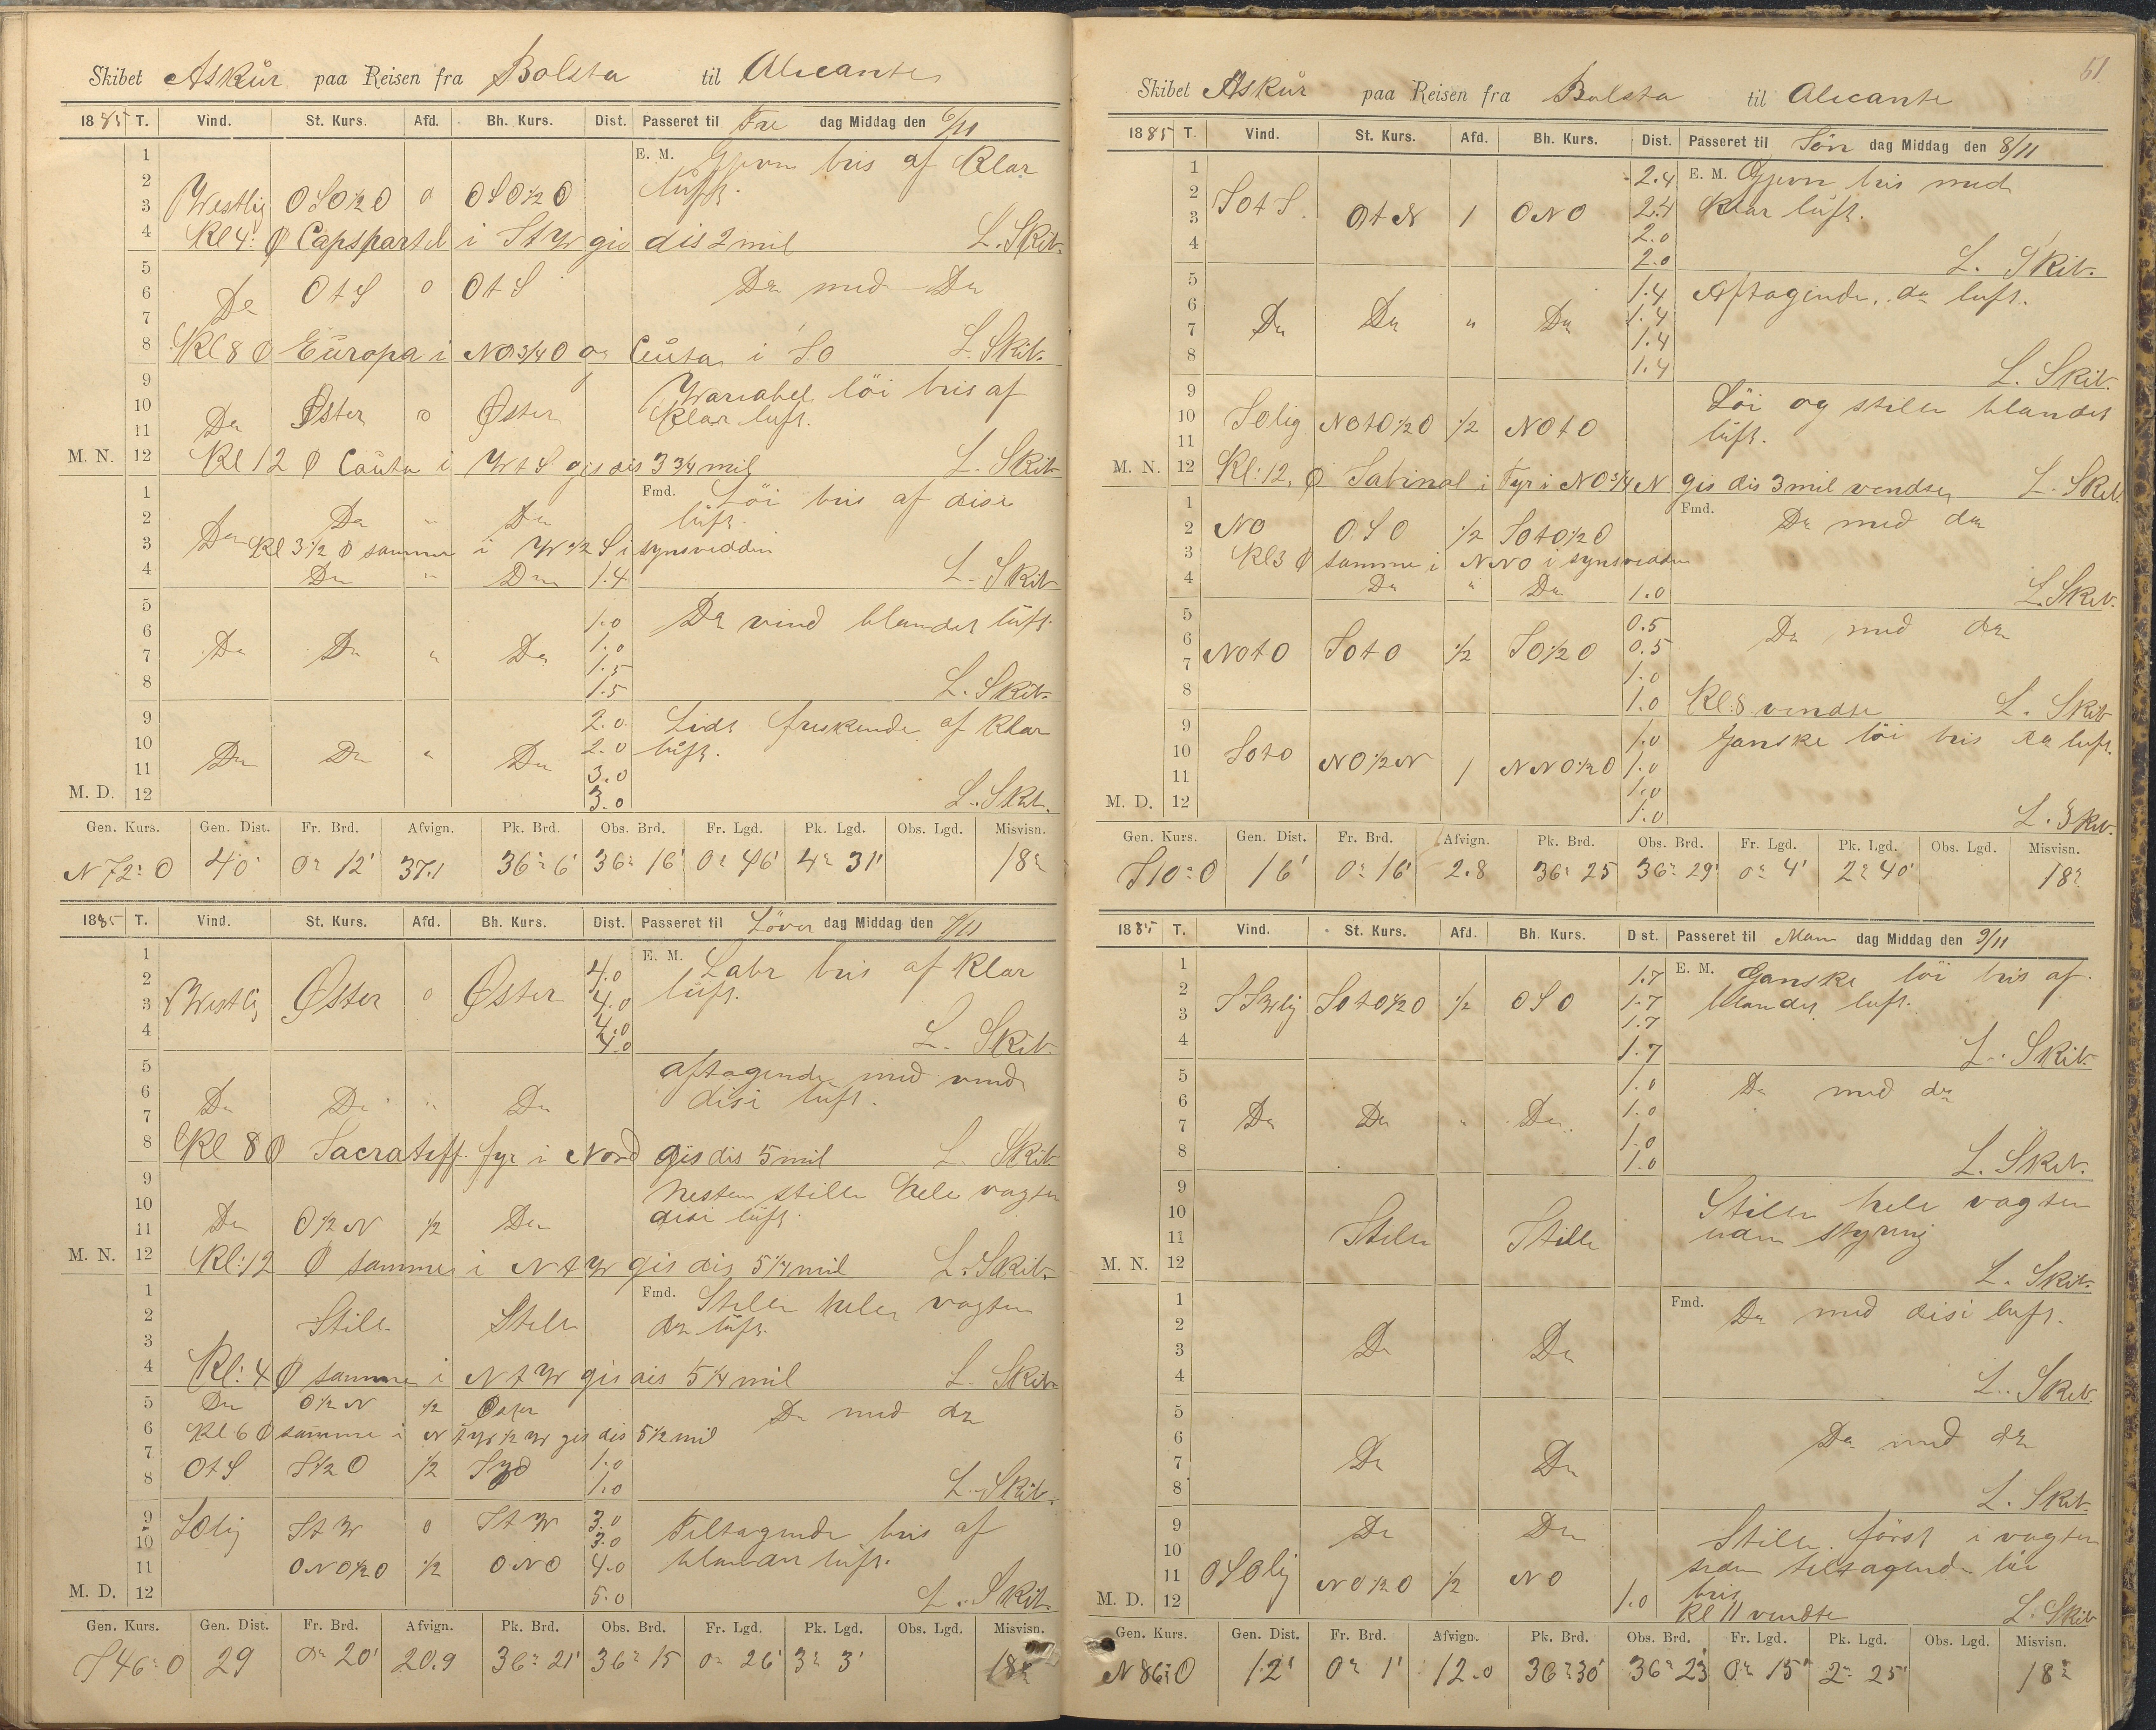 Skibet Askür paa Reisen fra Bolsta til Alicante
1885 T. Vind. St. Kurs. Afd. Bh. Kurs. Dist. Passeret til Fre dag Middag den 6/11
1 E. M. Gjevn bris af Klar
2 lüft.
3 Westlig OSO½O 0 OSO½O
4 Kl 4: Capspartel i StW gis dis 2 mil L. Skib.
5
6 Do OtS 0 OtS Do med Do
7
8 Kl 8 Europa i NO¾O og Ceüta i SO L. Skib.
9 Wariabel löi bris af
10 Do Øster 0 Øster Klar luft.
11
M. N. 12 Kl 12 Ceüta i WtS gis dis 3¾ mil L. Skib
1 Fmd. Löi bris af disi
2 Do Do " Do lüft.
3 Kl 3½ samme i W½S i synsvidden
4 Do " Do 1.4 L. Skib
5 1.0 Do vind blandet lüft.
6 Do Do " Do 1.0
7 1.5
8 1.5 L. Skib.
9 2.0 Lidt friskende af Klar
10 Do Do " Do 2.0 lüft.
11 3.0
M. D. 12 3.0 L. Skib.
Gen. Kurs. Gen. Dist. Fr. Brd. Afvign. Pk. Brd. Obs. Brd. Fr. Lgd. Pk. Lgd. Obs. Lgd. Misvisn.
N 72° O 40' 0° 12' 37.1 36° 6' 36° 16' 0° 46' 4° 31' 18°
1885 T. Vind. St. Kurs. Afd. Bh. Kurs. Dist. Passeret til Löver dag Middag den 7/11
1 4.0 E. M. Labr bris af Klar
2 Westlig Øster 0 Øster 4.0 lüft.
3 4.0
4 4.0 L. Skib.
5 aftagende med vind
6 Do Do " Do disi luft.
7
8 Kl 8 Sacratiff. fyr i Nord gis dis 5 mil L. Skib
9 Nesten stille hele vagten
10 Do O½N ½ Do disi lüft.
11
M. N. 12 Kl: 12 samme i NtW gis dis 5¼ mil L. Skib.
1 Fmd. Stille hele vagten
2 Stille Stille do lüft.
3
4 Kl: 4 samme i NtW gis dis 5¼ mil L. Skib
5 Do O½N ½ Øster Do med do
6 Kl 6 samme i NtW½W gis dis 5½ mil
7 OtS S½O ½ Syd 1.0
8 1.0 L. Skib.
9 SOlig StW 0 StW 3.0 Tiltagende bris af
10 3.0
11 ONO½O ½ ONO 4.0 blandet lüft.
M. D. 12 5.0 L. Skib.
Gen. Kurs. Gen. Dist. Fr. Brd. Afvign. Pk. Brd. Obs. Brd. Fr. Lgd. Pk. Lgd. Obs. Lgd. Misvisn.
S 46° O 29 0° 20' 20.9 36° 21' 36° 15 0° 26' 3° 3' 18°
61
Skibet Askür paa Reisen fra Bolsta til Alicante
1885 T. Vind. St. Kurs. Afd. Bh. Kurs. Dist. Passeret til Sön dag Middag den 8/11
1 2.4 E. M. Gjevn bris med
2 SOtS. OtN 1 ONO 2.4 Klar luft.
3 2.0
4 2.0 L. Skib.
5 1.4 Aftagende, do luft.
6 Do Do " Do 1.4
7 1.4
8 1.4 L. Skib.
9 Löi og stille blandet
10 SOlig NOtO½O ½ NOtO lüft.
11
M. N. 12 Kl: 12, Sabinal i Fyr i NO¾N gis dis 3 mil vendte L. Skib.
1 Fmd. Do med do
2 NO OSO ½ SOtO½O
3 Kl 3 samme i NNO i synsvidden
4 Do " Do 1.0 L. Skib.
5 0.5 Do med do
6 NOtO SOtO ½ SO½O 0.5
7 1.0
8 1.0 Kl: 8 vendte L. Skib
9 1.0 Ganske löi bris do luft.
10 SOtO NO½N 1 NNO½O 1.0
11 1.0
M. D. 12 1.0 L. Skib.
Gen. Kurs. Gen. Dist. Fr. Brd. Afvign. Pk. Brd. Obs. Brd. Fr. Lgd. Pk. Lgd. Obs. Lgd. Misvisn.
S 10° O 16' 0° 16' 2.8 36° 25 36° 29' 0° 4' 2° 40' 18°
1885 T. Vind. St. Kurs. Afd. Bh. Kurs. Dist. Passeret til Man dag Middag den 9/11
1 1.7 E. M. Ganske löi bris af
2 SSWlig SOtO½O ½ OSO 1.7 blandet luft.
3 1.7
4 1.7 L. Skib.
5 1.0 Do med do
6 Do Do " Do. 1.0
7 1.0
8 1.0 L. Skib.
9 Stille hele vagten
10 Stille Stille uden styring
11
M. N. 12 L. Skib.
1 Fmd. Do med disi luft.
2
3 Do Do
4 L. Skib.
5
6 Do med do
7 Do Do
8 L. Skib.
9 Do Do Stille först i vagten
10 siden tiltagende löi
11 OSOlig NO½O ½ NO bris
M. D. 12 1.0 Kl 11 vendte L. Skib
Gen. Kurs. Gen. Dist. Fr. Brd. Afvign. Pk. Brd. Obs. Brd. Fr. Lgd. Pk. Lgd. Obs. Lgd. Misvisn.
N 86° O 12' 0° 1' 12.0 36° 30' 36° 23 0° 15' 2° 25' 18°